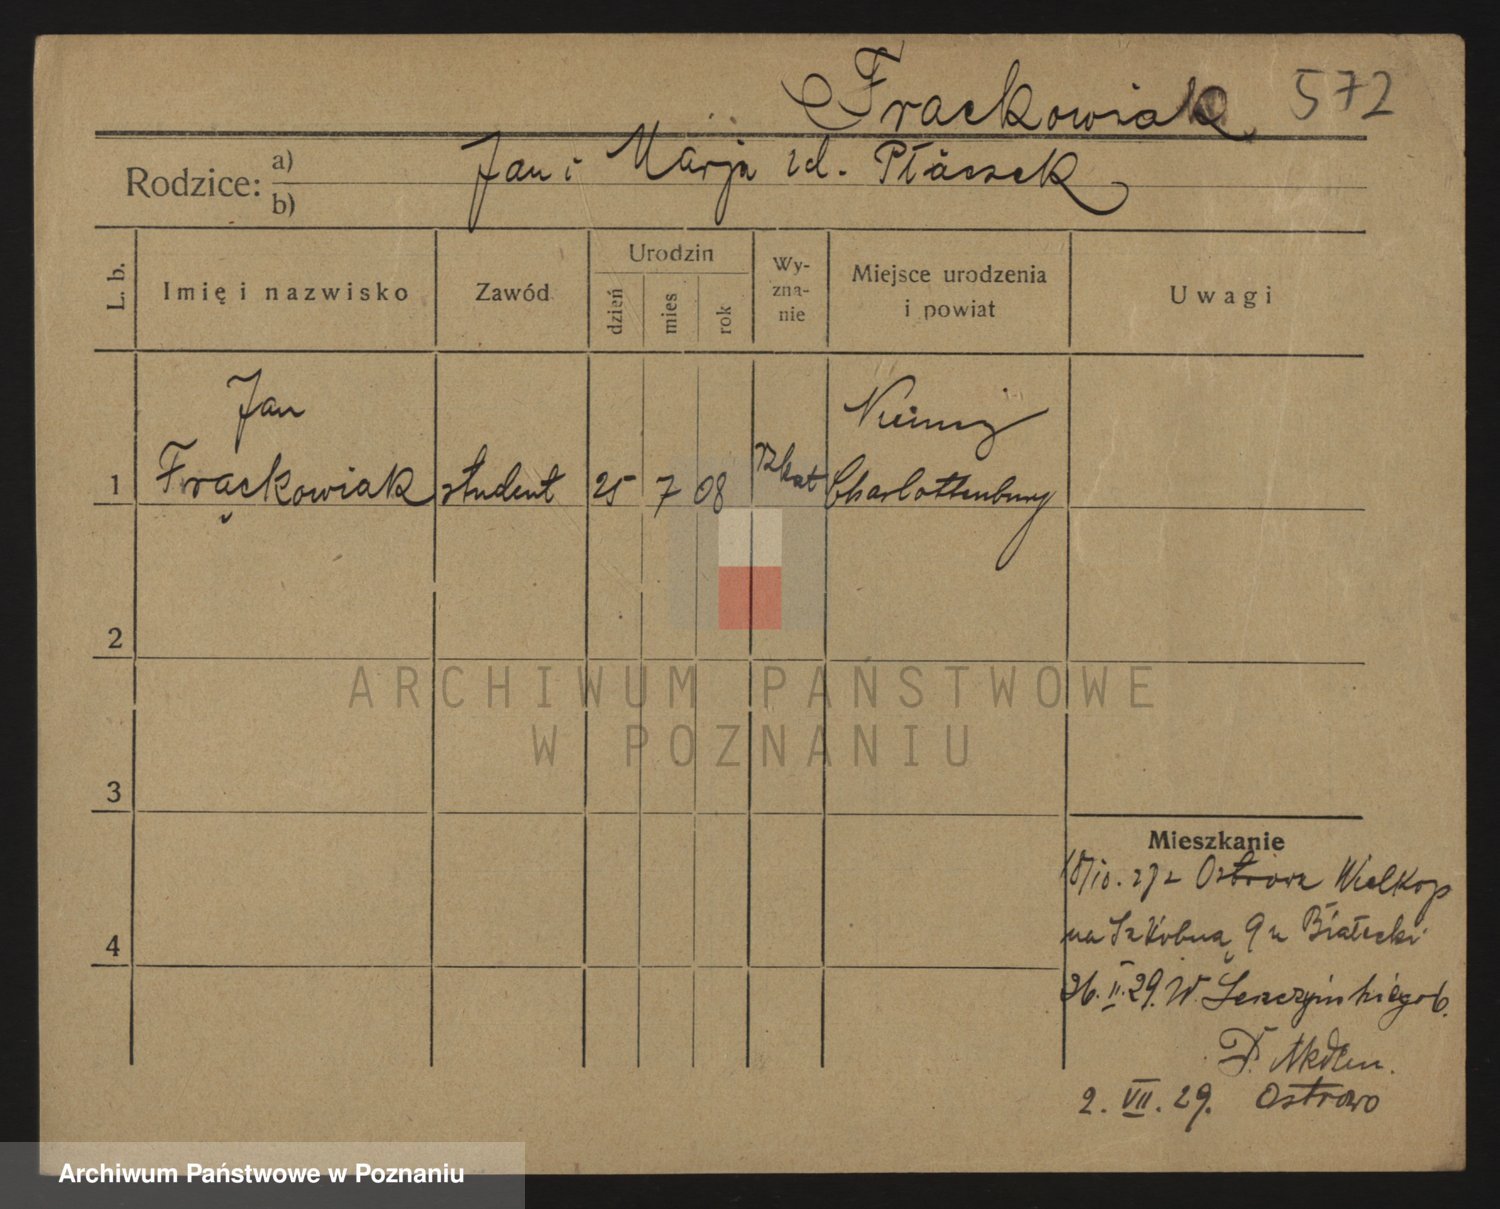 Frąckowiak 572
Rodzice: a) b)
Jan i Marja zd. Ptaszek
L. b.
Imię i nazwisko
Zawód
Urodzin
dzień
mies
rok
Wy-
zna-
nie
Miejsce urodzenia
i powiat
Uwagi
Jan Niemcy
1 Frąckowiak student 25 7 08 Rzkat Charlottenburg
2
3
4
Mieszkanie
18/10. 27 z Ostrowa Wielkop
na Szkolną 9 u Białecki
26. II. 29. W. Leszczyńskiego 6.
D. Akdem.
2. VII. 29. Ostrowo
ARCHIWUM PAŃSTWOWE
W POZNANIU
Archiwum Państwowe w Poznaniu